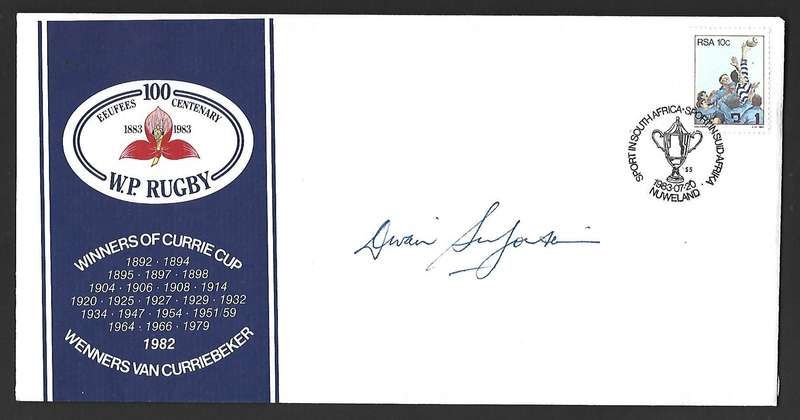 100
EEUFEES CENTENARY
1883 1983
W.P. RUGBY
WINNERS OF CURRIE CUP
1892 · 1894
1895 · 1897 · 1898
1904 · 1906 · 1908 · 1914
1920 · 1925 · 1927 · 1929 · 1932
1934 · 1947 · 1954 · 1951/59
1964 · 1966 · 1979
1982
WENNERS VAN CURRIEBEKER
RSA 10c
SPORT IN SOUTH AFRICA · SPORT IN SUID-AFRIKA
1983-07-20
NUWELAND